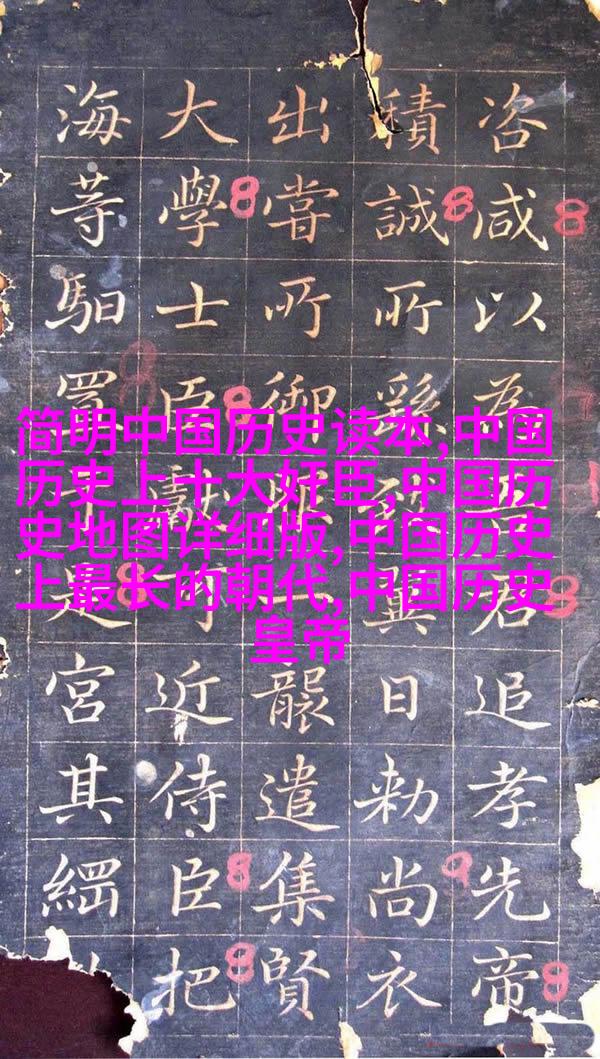 简明中国历史读本,中国
历史上十大奸臣,中国历
史地图详细版,中国历史
上最长的朝代,中国历史
皇帝
咨咸以為君追孝先帝
積誠所繇日勅尚衣
出嘗所御襲遣集賢
大學士臣近侍臣把
海等馹是宮其